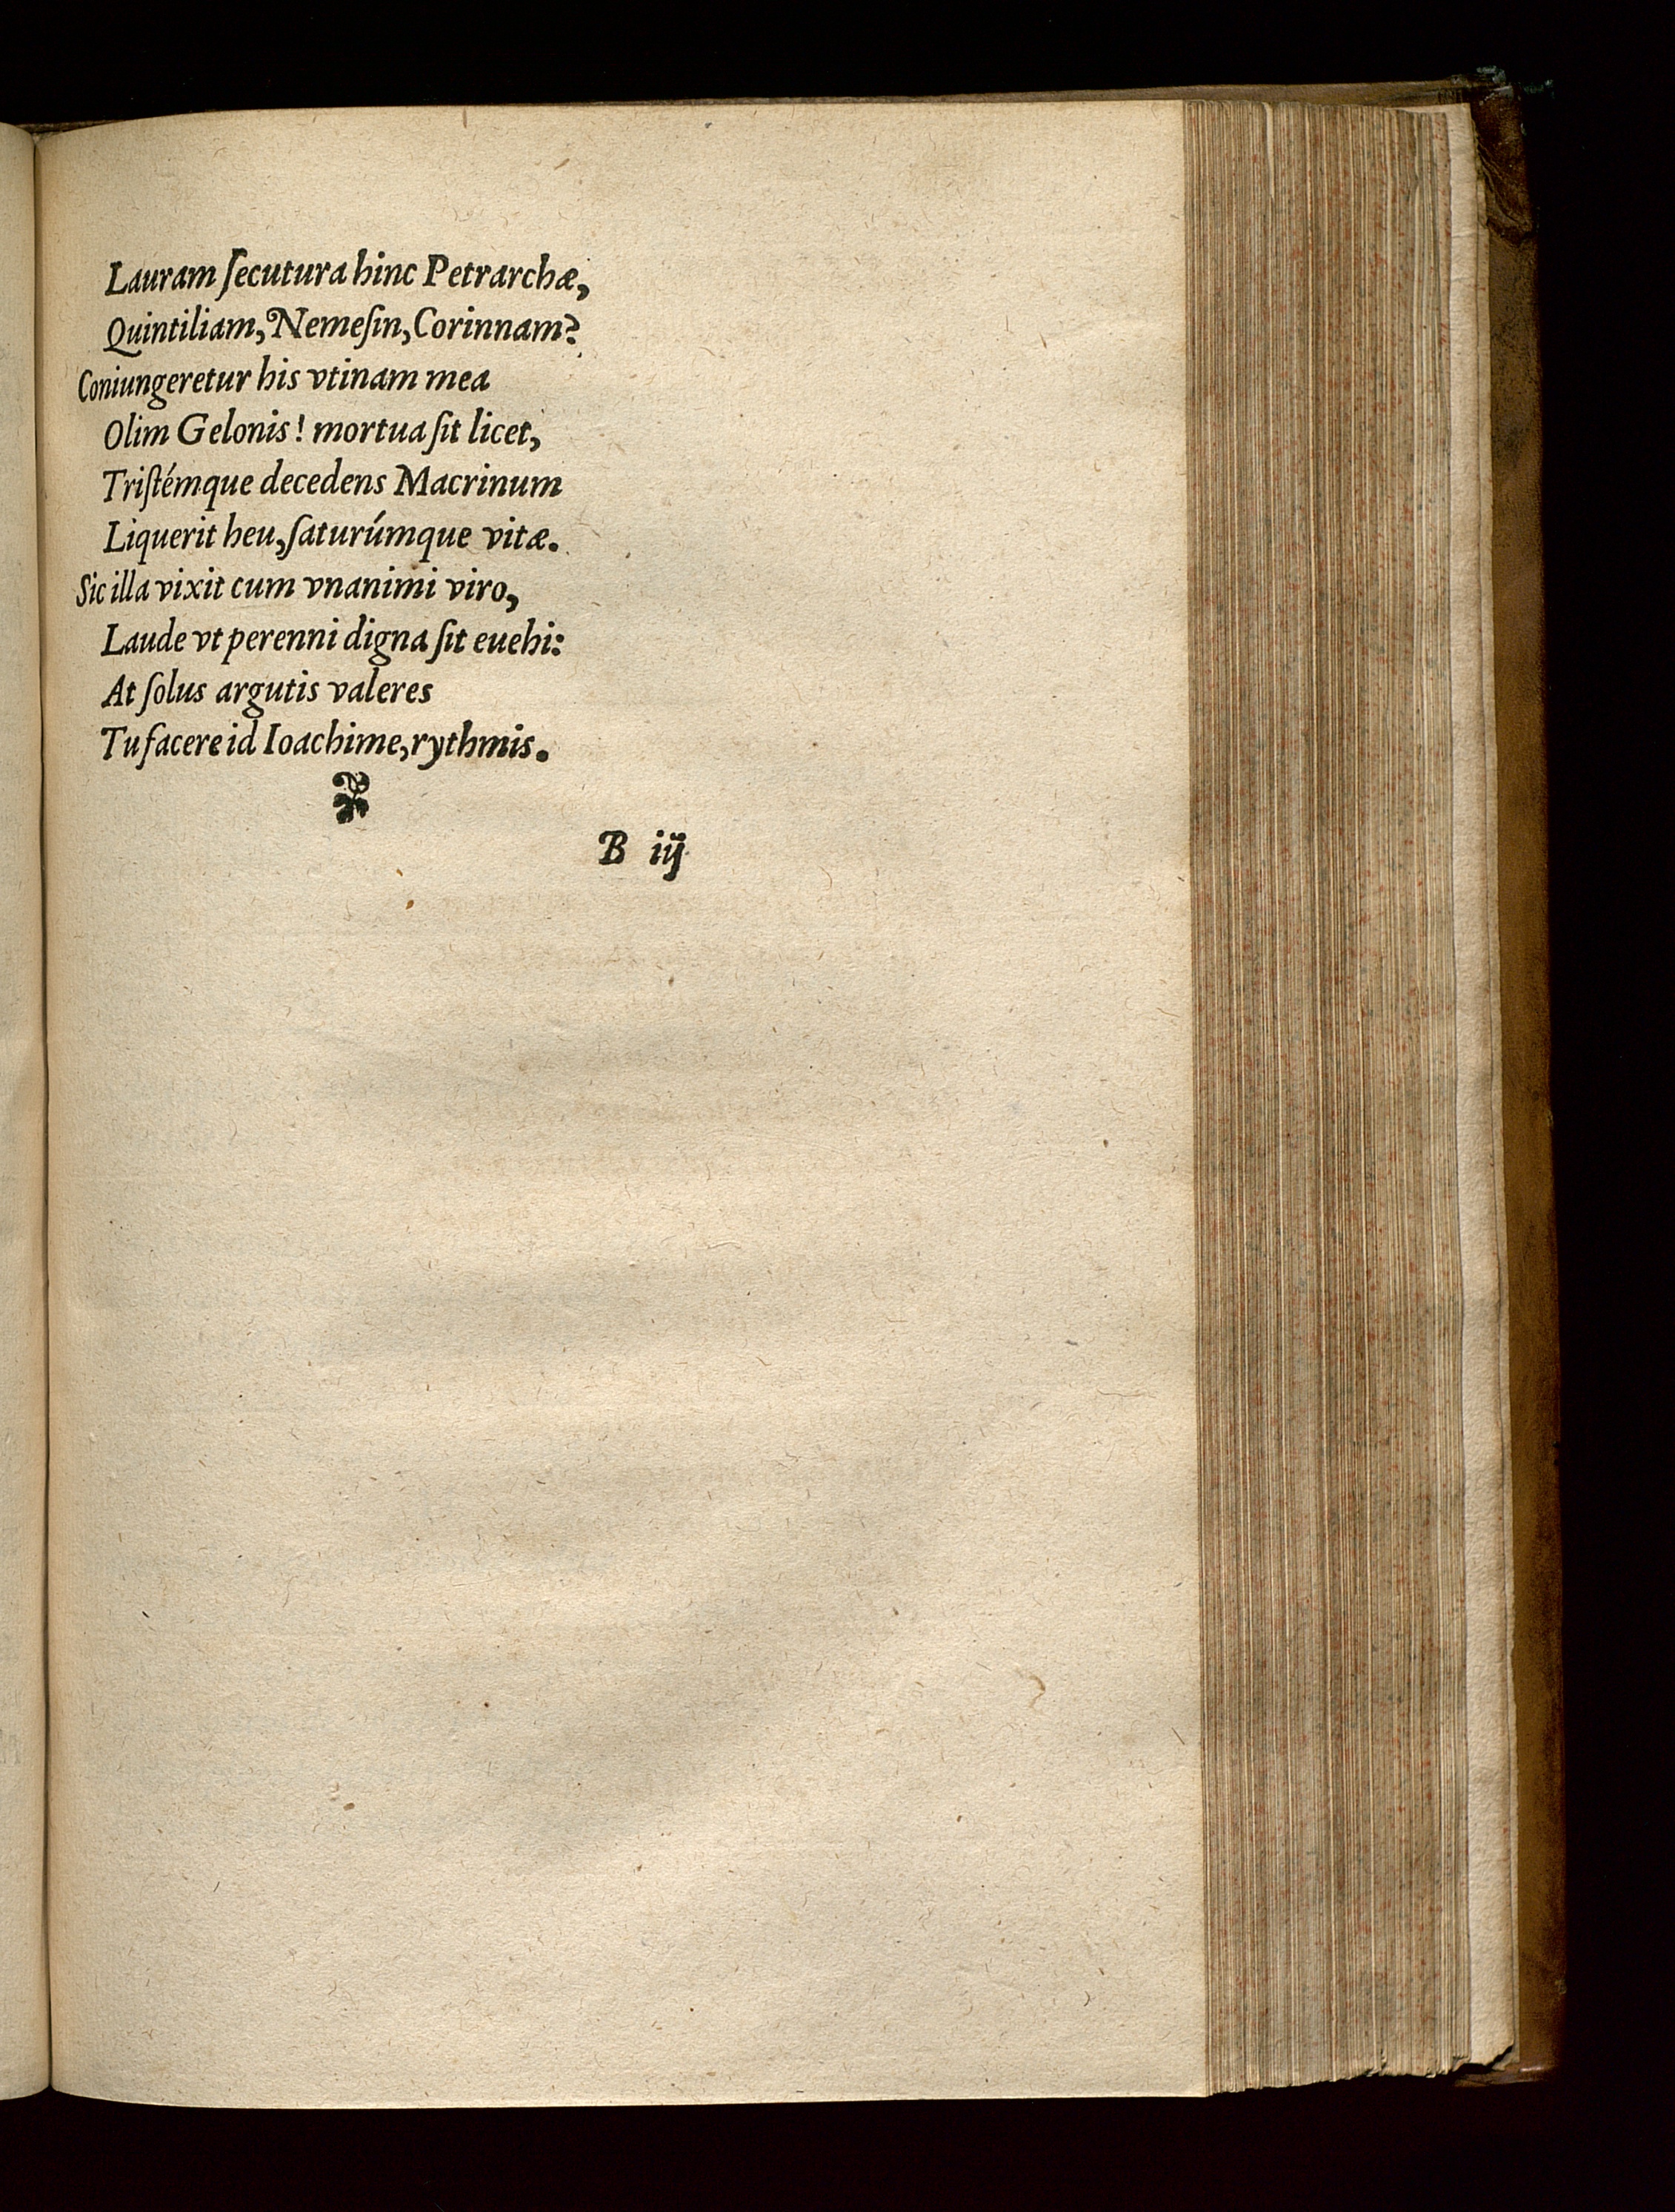 Lauram ſecutura hinc Petrarchæ,
Quintiliam, Nemeſin, Corinnam?
Coniungeretur his vtinam mea
Olim Gelonis! mortua ſit licet,
Triſtémque decedens Macrinum
Liquerit heu, ſaturúmque vitæ.
Sic illa vixit cum vnanimi viro,
Laude vt perenni digna ſit euehi:
At ſolus argutis valeres
Tu facere id Ioachime, rythmis.
B iij